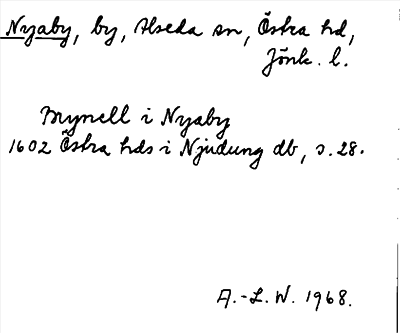 Nyaby, by, Alseda sn, Östra hd,
Jönk. l.
Mynell i Nyaby
1602 Östra hds i Njudung db, s. 28.
A.-L. W. 1968.